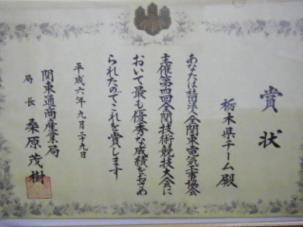 賞状
栃木県チーム殿
あなたは 全関東電気工事協会
主催第四回全関技術競技大会に
おいて最も優秀な成績をおさめ
られたのでこれを賞します
平成六年九月二十九日
関東通商産業局
局長 桑原茂樹